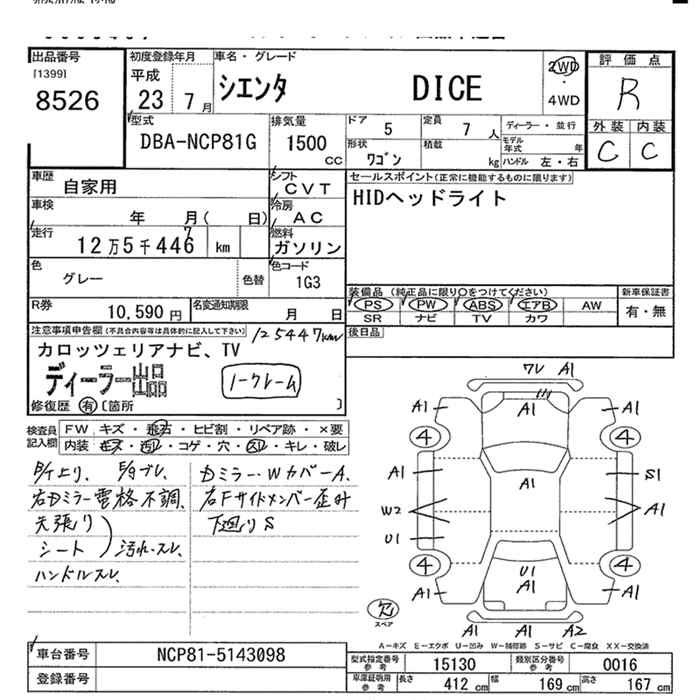 出品番号
[1399]
8526
初度登録年月
平成
23 7月
車名・グレード
シエンタ DICE
2WD
・
4WD
評価点
R
外装 内装
C C
型式
DBA-NCP81G
排気量
1500
CC
ドア 5
定員 7 人
ディーラー・並行
形状
ワゴン
積載 kg
モデル年式 年
ハンドル 左・右
車歴
自家用
シフト
CVT
車検
年 月( 日)
冷房
AC
走行
12万5千446 km
7
燃料
ガソリン
色
グレー
色替
色コード
1G3
R券
10,590円
名変通知期限
月 日
セールスポイント(正常に機能するものに限ります)
HIDヘッドライト
装備品(純正品に限り○をつけてください)
PS PW ABS エアB AW
SR ナビ TV カワ
新車保証書
有・無
後日品
注意事項申告欄(不具合内容等は具体的に記入して下さい)
125447km
カロッツェリアナビ、TV
ディーラー出品
ノークレーム
修復歴 有 [箇所 ]
検査員
記入欄
FW キズ・飛石・ヒビ割・リペア跡・×要
内装 キズ・汚れ・コゲ・穴・スレ・キレ・破レ
右Dミラー電格不調、
天張り
シート
汚れ・スレ
ハンドルスレ、
Dミラー・WカバーA、
右Fサイドメンバー歪み
下廻りS
ワレ A1
A1 A1 A1
4 4
A1 A1 S1
W2 A1
U1
U1
A1
4 4
A1 A1
A1 A2
欠
スペア
A―キズ E―エクボ U―凹み W―補修跡 S―サビ C―腐食 XX―交換済
車台番号
NCP81-5143098
登録番号
型式指定番号
参考
15130
類別区分番号
参考
0016
車庫証明用
参考
長さ 412 cm
幅 169 cm
高さ 167 cm